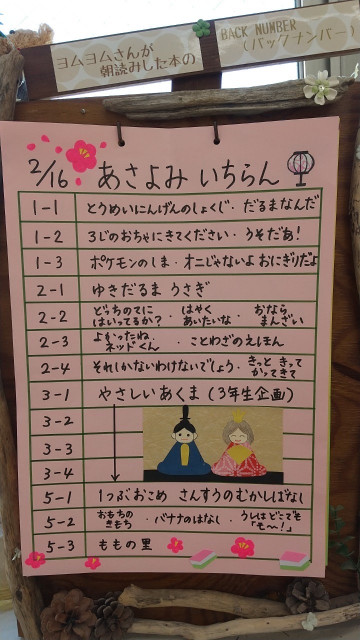 ヨムヨムさんが
朝読みした本の
BACK NUMBER
(バックナンバー)
2/16 あさよみ いちらん
1-1 とうめいにんげんのしょくじ・だるまなんだ
1-2 3じのおちゃにきてください・うそだあ!
1-3 ポケモンのしま・オニじゃないよ おにぎりだよ
2-1 ゆきだるま うさぎ
2-2 どっちのてに はいってるか?・はやく あいたいな・おなら まんざい
2-3 よかったね、ネッドくん・ことわざのえほん
2-4 それしかないわけないでしょう・きっと きって かってきて
3-1 やさしいあくま(3年生企画)
3-2
3-3
3-4
5-1 1つぶおこめ さんすうのむかしばなし
5-2 おもちの きもち・バナナのはなし・うしはどこでも「モ〜!」
5-3 ももの里